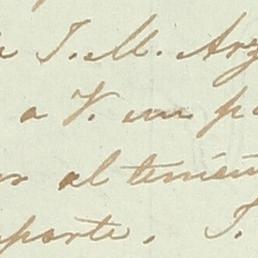 J. M. Arg
a V. un pa
al tenien
aporte. J.